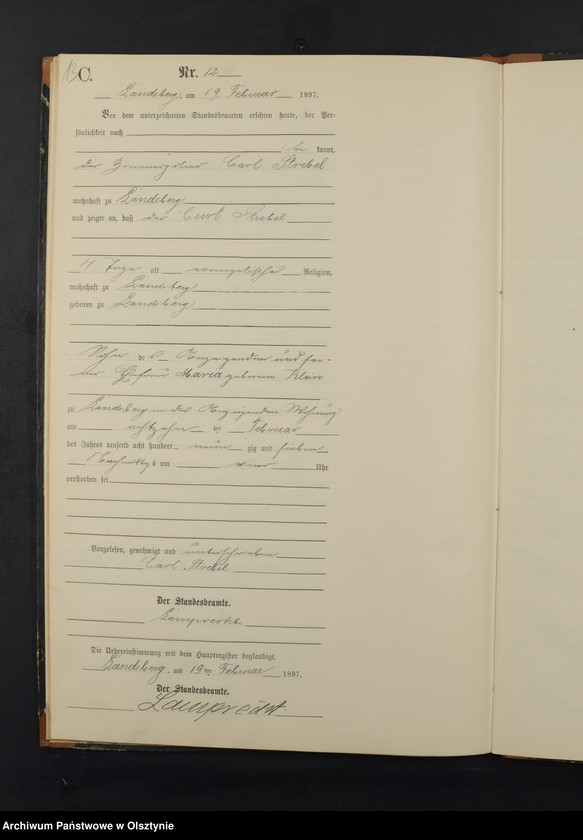 C.
Nr. 12
Landsberg, am 19. Februar 1897.
Vor dem unterzeichneten Standesbeamten erschien heute, der Per-
sönlichkeit nach
be kannt,
der Zimmergeselle Carl Strebel
wohnhaft zu Landsberg
und zeigte an, daß der Curt Strebel
4 Tage alt evangelischer Religion,
wohnhaft zu Landsberg
geboren zu Landsberg
Sohn des Anzeigenden und sei-
ner Ehefrau Maria geborene Klein
zu Landsberg in des Anzeigenden Wohnung
am achtzehn ten Februar
des Jahres tausend acht hundert neun zig und sieben
Nachmittags um vier Uhr
verstorben sei
Vorgelesen, genehmigt und unterschrieben
Carl Strebel
Der Standesbeamte.
Lamprecht
Die Uebereinstimmung mit dem Hauptregister beglaubigt.
Landsberg, am 19ten Februar 1897.
Der Standesbeamte.
Lamprecht
Archiwum Państwowe w Olsztynie